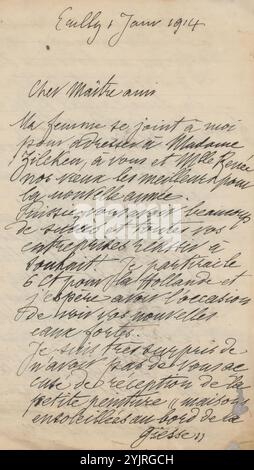 Ecully 1 Janv 1914
Cher Maître ami
Ma femme se joint à moi
pour adresser à Madame
Zilcken, à vous et Mlle Renée
nos vœux les meilleurs pour
la nouvelle année.
beaucoup
de succès et toutes vos
entreprises réussir à
souhait. Je partirai le
6 Ct pour la Hollande et
j'espère avoir l'occasion
de voir vos nouvelles
eaux fortes.
Je suis très surpris de
n'avoir pas de vous ac
cusé de réception de la
petite peinture "maisons
ensoleillées au bord de la
alamy
Image ID: 2YJRGCH
www.alamy.com